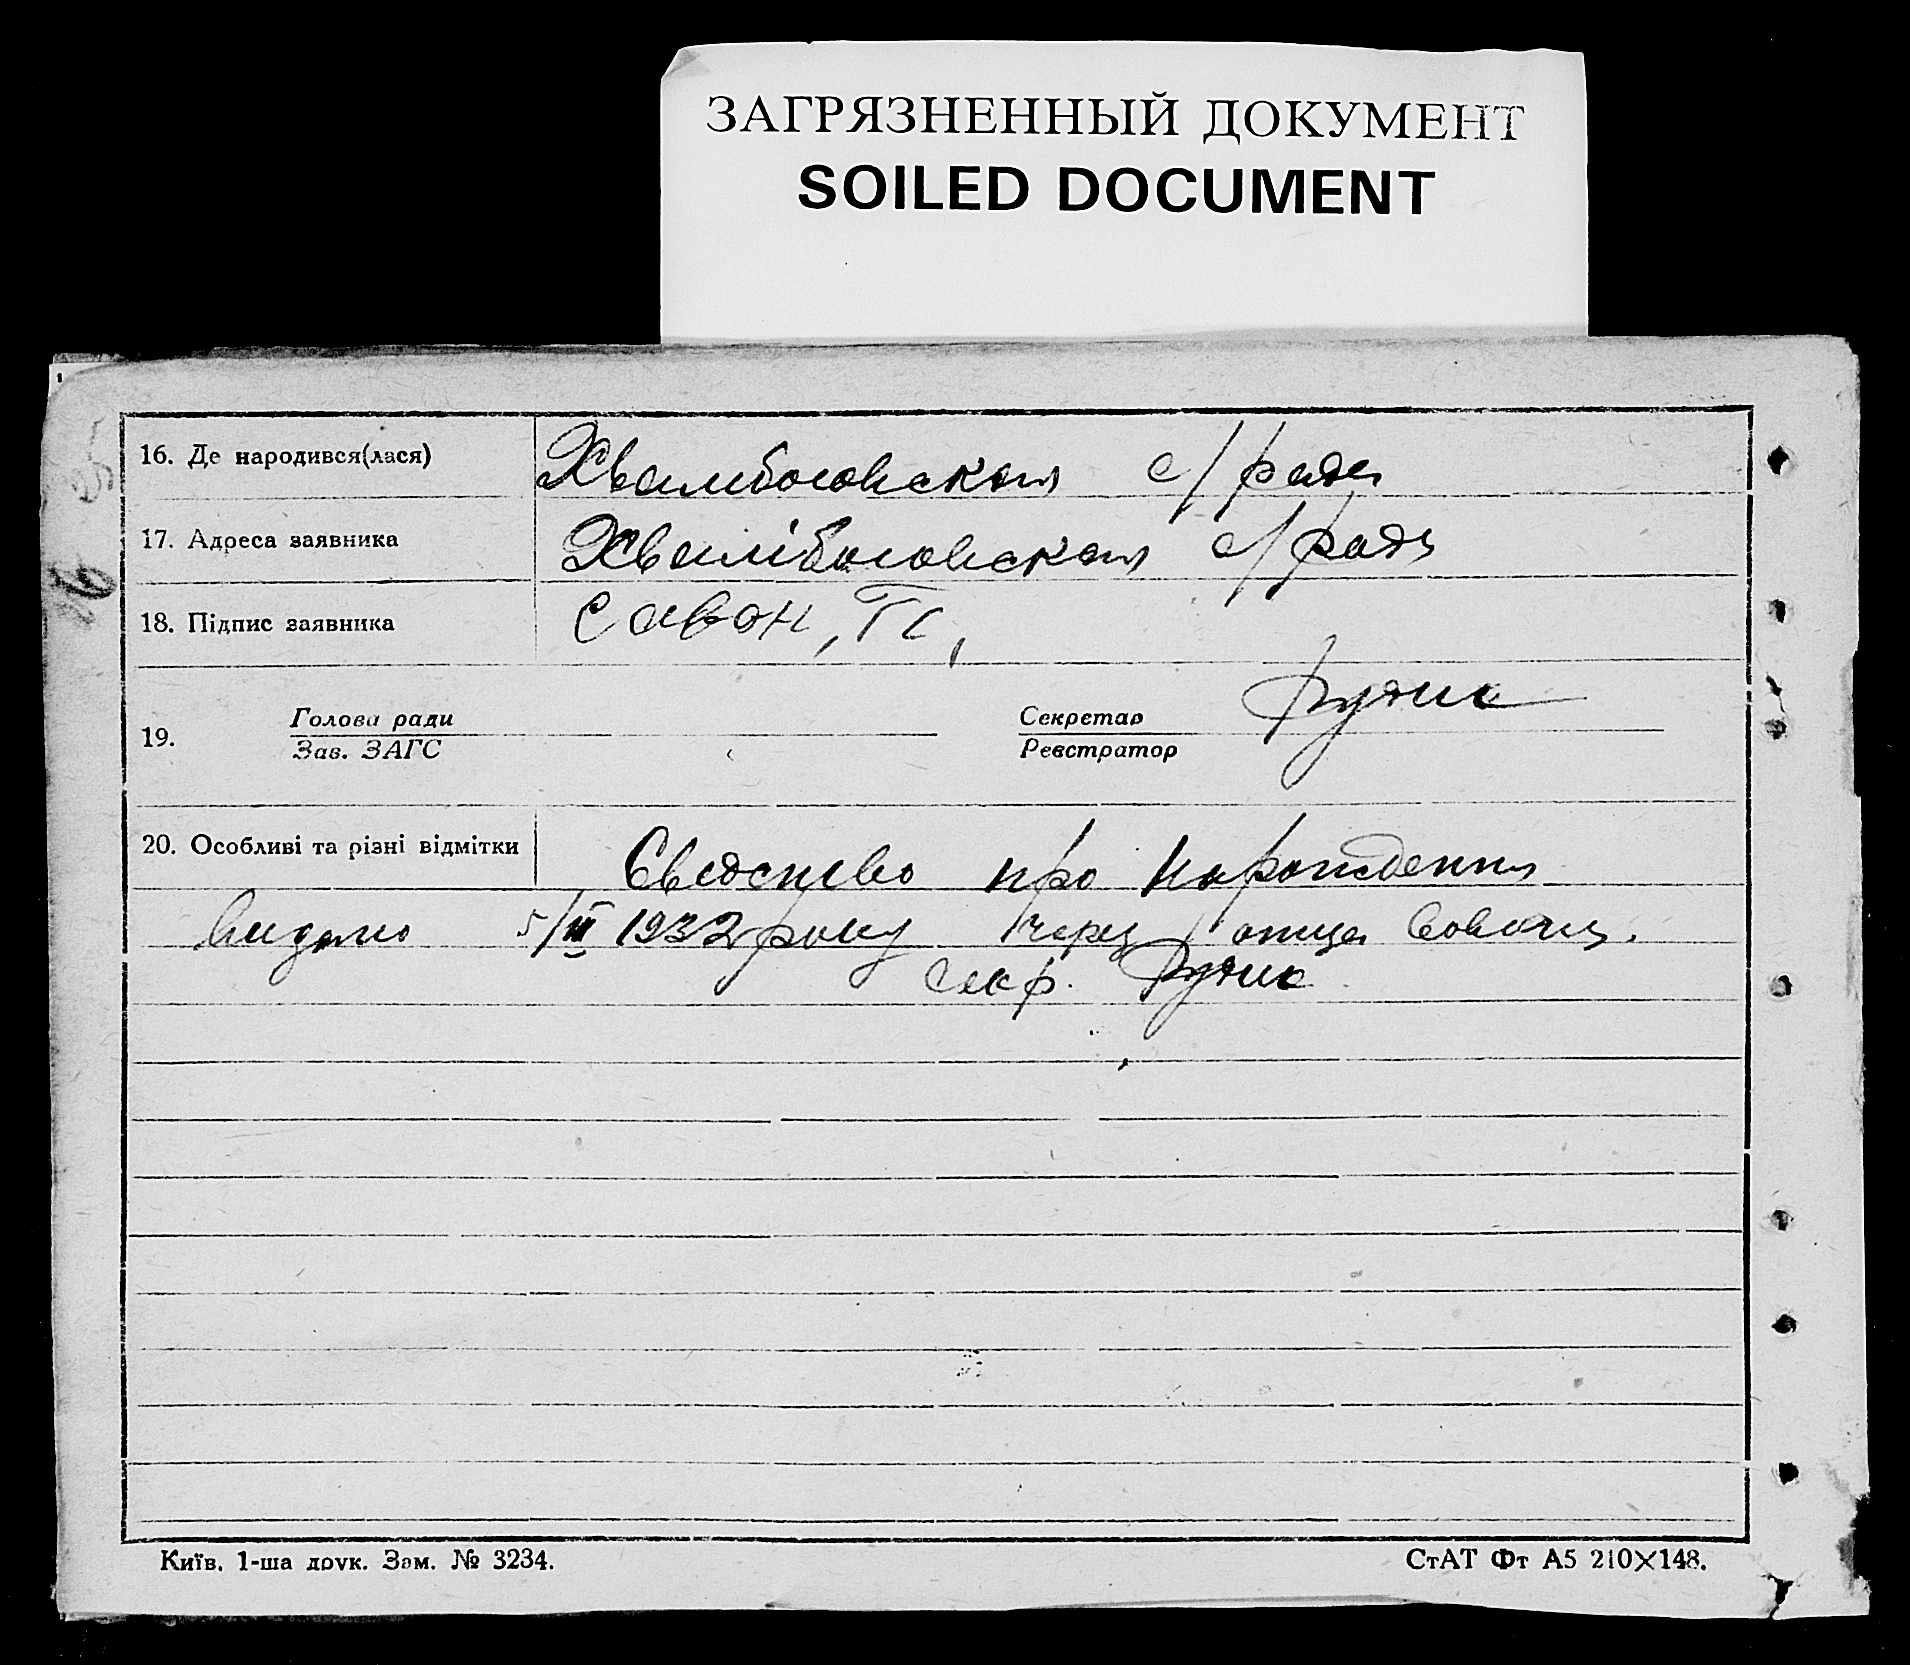 ЗАГРЯЗНЕННЫЙ ДОКУМЕНТ
SOILED DOCUMENT
16. Де народився(лася) Хвалибоговская с/рада
17. Адреса заявника Хвалібоговская с/рада
18. Підпис заявника Савон, Гс,
19. Голова ради Секретар Рудик
Зав. ЗАГС Реєстратор
20. Особливі та різні відмітки Свєдєцтво про Нарождення
видано 5/III 1932 року через отца
секр. Рудик
Київ. 1-ша друк. Зам. № 3234. СтАТ Фт А5 210×148.